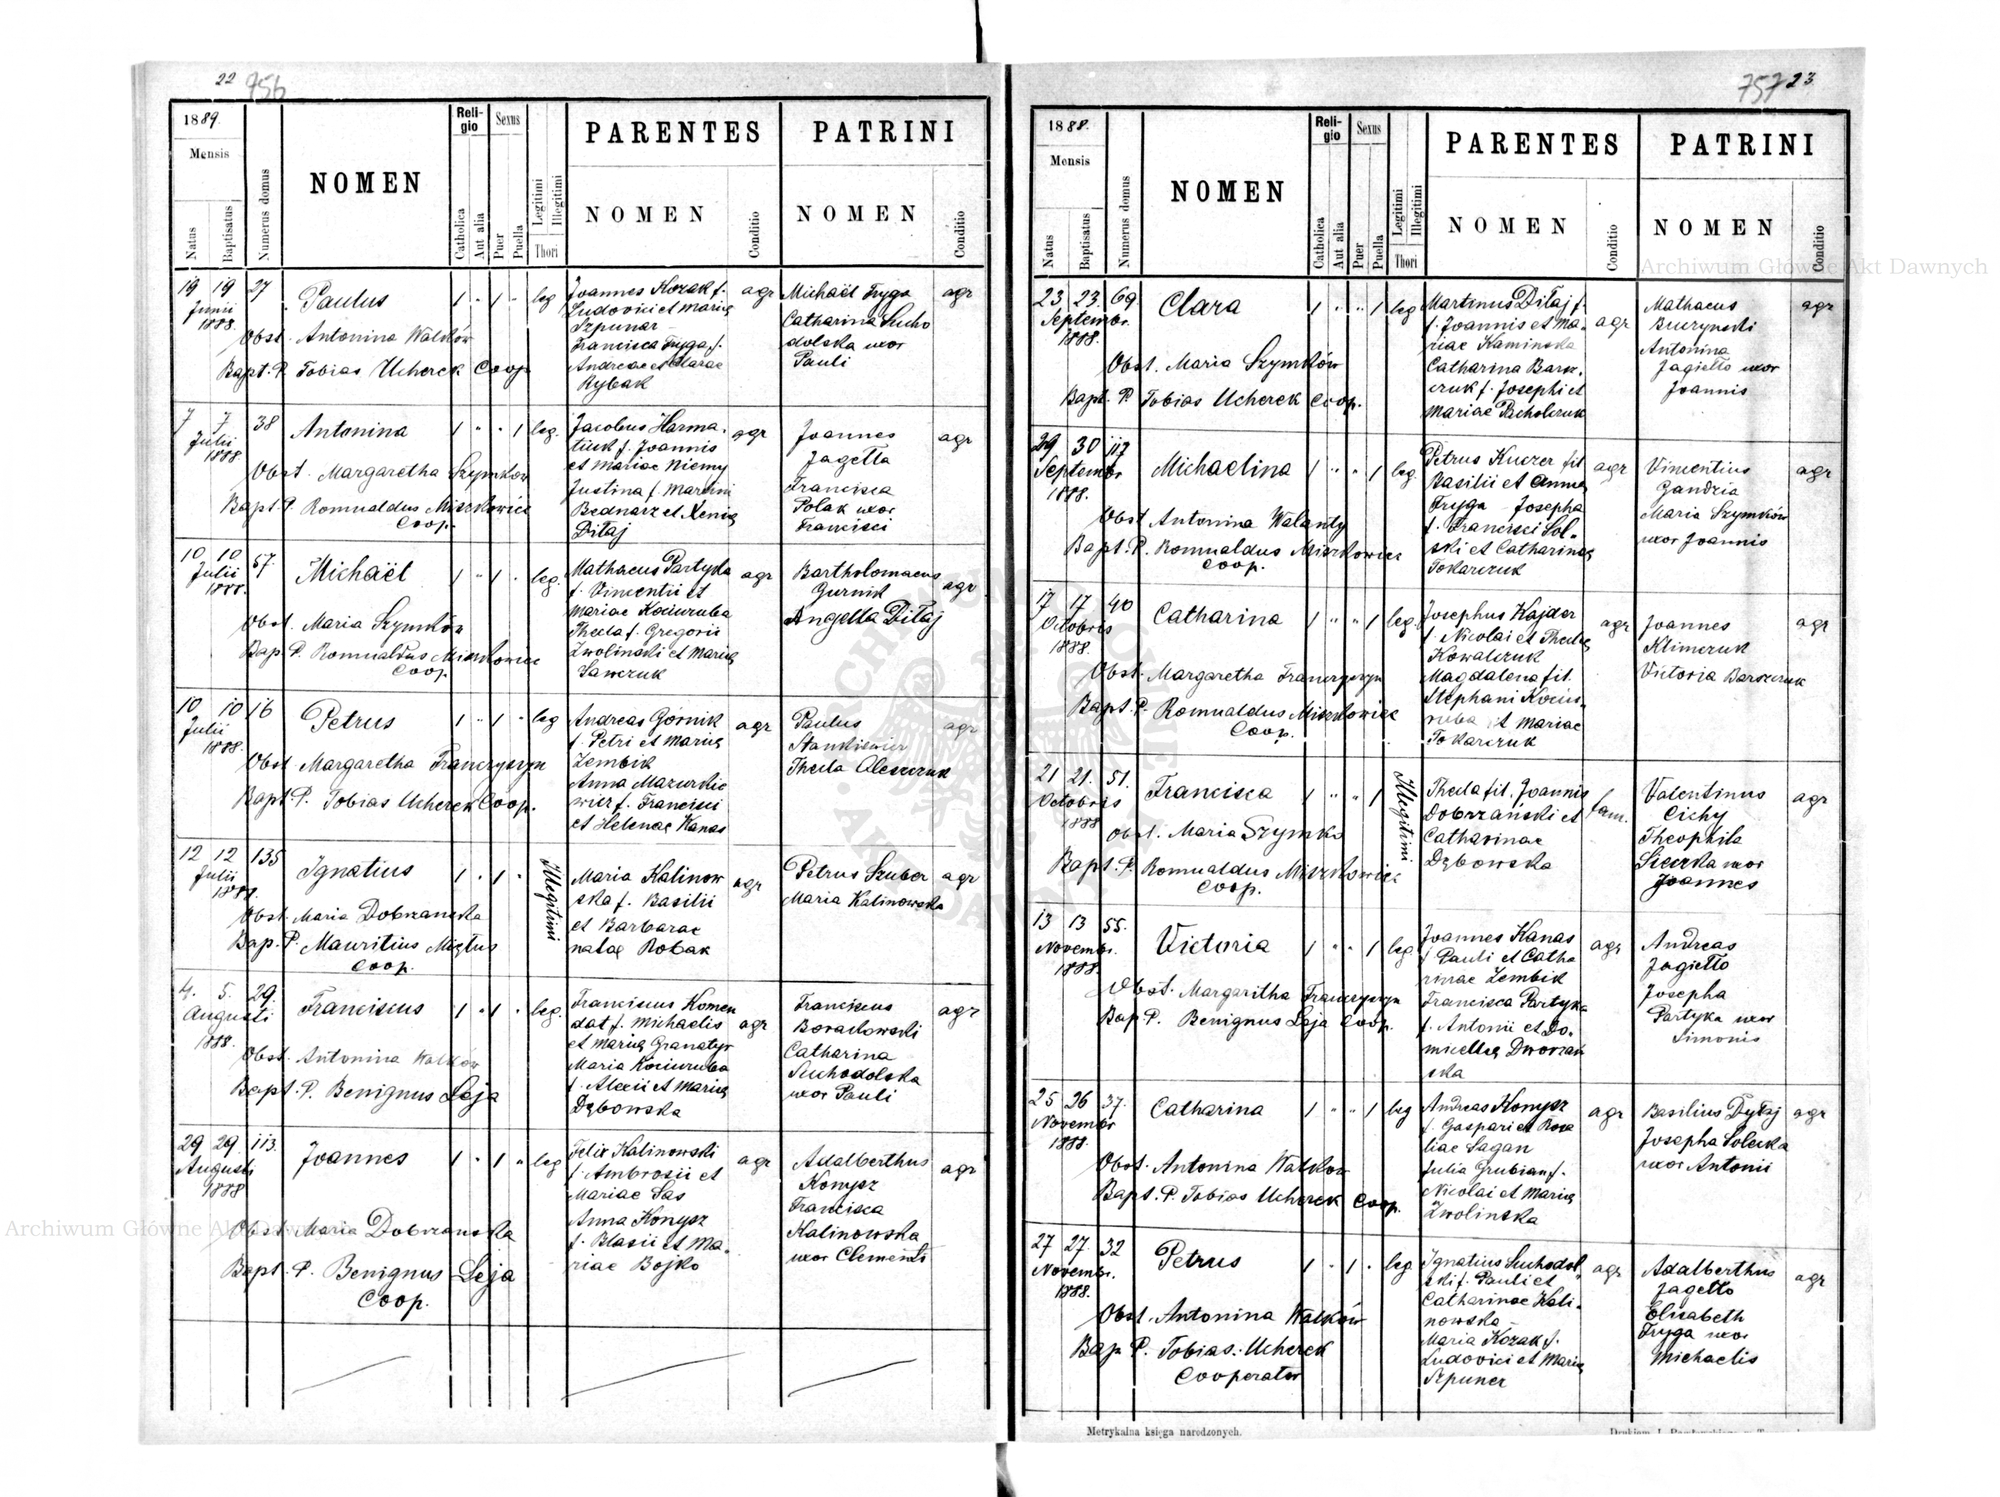 22 756
1889.
Mensis
Natus
Baptisatus
Numerus domus
NOMEN
Religio
Catholica
Aut alia
Sexus
Puer
Puella
Legitimi
Illegitimi
Thori
PARENTES
NOMEN
Conditio
PATRINI
NOMEN
Conditio
19 19 27 Paulus 1 " 1 " leg
Junii
1888.
Obst. Antonina Walków
Bapt. P. Tobias Ucherek Coop
Joannes Kozak f. agr
Ludovici et Mariae
Szpunar
Francisca Fryga f.
Andreae et Clarae
Rybak
Michaël Fryga agr
Catharina Sucho
dolska uxor
Pauli
7 7 38 Antonina 1 " " 1 leg.
Julii
1888.
Obst. Margaretha Szymków
Bapt. P. Romualdus Miszkowicz
Coop.
Jacobus Harma- agr
tiuk f. Joannis
et Mariae Niemy
Justina f. Martini
Bednarz et Xenia
Ditaj
Joannes agr
Jagełła
Francisca
Polak uxor
Francisci
10 10 57. Michaël 1 " 1 " leg.
Julii
1888.
Obst. Maria Szymków
Bap. P. Romualdus Miszkowicz
Coop.
Mathaeus Partyka agr
f. Vincentii et
Mariae Kociuruba
Thecla f. Gregorii
Zwolinski et Mariae
Sawczuk
Bartholomaeus agr
Gurnik
Angella Ditaj
10 10 16 Petrus 1 " 1 " leg
Julii
1888.
Obst. Margaretha Franczyszyn
Bapt. P. Tobias Ucherek Coop.
Andreas Górnik agr
f. Petri et Mariae
Zembik
Anna Mazurkie
wicz f. Francisci
et Helenae Kanas
Paulus agr
Stankiewicz
Thecla Oleszczuk
12 12 135 Ignatius 1 " 1 " Illegitimi
Julii
1888.
Obst. Maria Dobrzanska
Bap. P. Mauritius Miętus
Coop.
Maria Kalinow agr
ska f. Basilii
et Barbarae
natae Robak
Petrus Szuber agr
Maria Kalinowska
4. 5. 29. Franciscus 1 " 1 " leg.
Augusti
1888.
Obst. Antonina Walków
Bapt. P. Benignus Leja
Franciscus Komen
dat f. Michaelis agr
et Mariae Granatyr
Maria Kociuruba
f. Alexii et Mariae
Dębowska
Franciscus agr
Boraćkowski
Catharina
Suchodolska
uxor Pauli
29 29 113. Joannes 1 " 1 " leg
Augusti
1888
Obst. Maria Dobrzanska
Bapt. P. Benignus Leja
Coop.
Felix Kalinowski agr
f. Ambrosii et
Mariae Sas
Anna Konysz
f. Blasii et Ma-
riae Bojko
Adalberthus agr
Konysz
Francisca
Kalinowska
uxor Clementi
757 23
1888.
Mensis
Natus
Baptisatus
Numerus domus
NOMEN
Religio
Catholica
Aut alia
Sexus
Puer
Puella
Legitimi
Illegitimi
Thori
PARENTES
NOMEN
Conditio
PATRINI
NOMEN
Conditio
23. 23. 69. Clara 1 " " 1 leg
Septembr.
1888.
Obst. Maria Szymków
Bapt. P. Tobias Ucherek Coop.
Martinus Ditaj f.
f. Joannis et Ma- agr
riae Kaminska
Catharina Barsz-
czuk f. Josephi et
Mariae Pacholczuk
Mathaeus agr
Buczynski
Antonina
Jagiełło uxor
Joannis
29 30 117 Michaelina 1 " " 1 leg.
Septembr
1888.
Obst Antonina Walanty
Bapt. P. Romualdus Miszkowicz
Coop.
Petrus Kuczer fil agr
Basilii et Annae
Fryga - Josepha
f. Francisci Sol-
ski et Catharinae
Tokarczuk
Vincentius agr
Gandzia
Maria Szymków
uxor Joannis
17 17 40 Catharina 1 " " 1 leg.
Octobris
1888.
Obst. Margaretha Franczyszyn
Bapt. P. Romualdus Miszkowicz
Coop.
Josephus Kajder agr
f. Nicolai et Theclae
Kowalczuk
Magdalena fil.
Stephani Kociu-
ruba et Mariae
Tokarczuk
Joannes agr
Klimczuk
Victoria Barszczuk
21 21. 51. Francisca 1 " " 1 Illegitimi
Octobris
1888
Obst. Maria Szymko
Bapt. P. Romualdus Miszkowicz
Coop.
Thecla fil. Joannis fam.
Dobrzański et
Catharinae
Dębowska
Valentinus agr
Cichy
Theophila
Sieczka uxor
Joannes
13 13 55. Victoria 1 " " 1 leg.
Novembr.
1888.
Obst. Margaritha Franczyszyn
Bap P. Benignus Leja Coop.
Joannes Kanas agr
f. Pauli et Catha
rinae Zembik
Francisca Partyka
f. Antonii et Do-
micellae Dworzań
ska
Andreas agr
Jagiełło
Josepha
Partyka uxor
Simonis
25 26 37. Catharina 1 " " 1 leg
Novembr
1888.
Obst. Antonina Walkow
Bapt. P. Tobias Ucherek Coop.
Andreas Konysz agr
f. Gaspari et Rosa
liae Sagan
Julia Grubian f.
Nicolai et Mariae
Zwolinska
Basilius Dyłaj agr
Josepha Solecka
uxor Antonii
27 27. 32 Petrus 1 " 1 " leg
Novembr.
1888.
Obst. Antonina Walków
Bap P. Tobias Ucherek
Cooperator
Ignatius Suchodol agr
ski f. Pauli et
Catharinae Kali-
nowska -
Maria Kozak f.
Ludovici et Mariae
Szpuner
Adalberthus agr
Jagełło
Elisabeth
Fryga uxor
Michaelis
Metrykalna księga narodzonych.
Archiwum Główne Akt Dawnych
Archiwum Główne Akt Dawnych